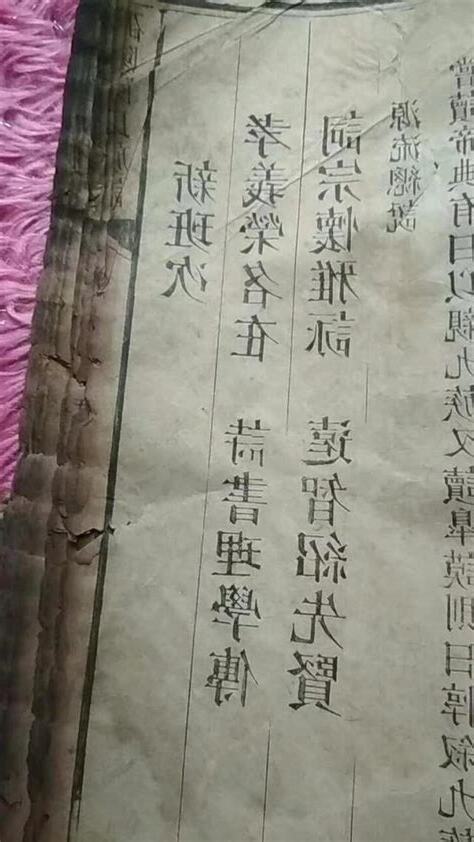 新班次
孝義榮名在　詩書理學傳
詞宗懷雅詠　達智紹先賢
源流總說
嘗讀帝典有曰以親九族又讀臯謨則曰惇叙九族